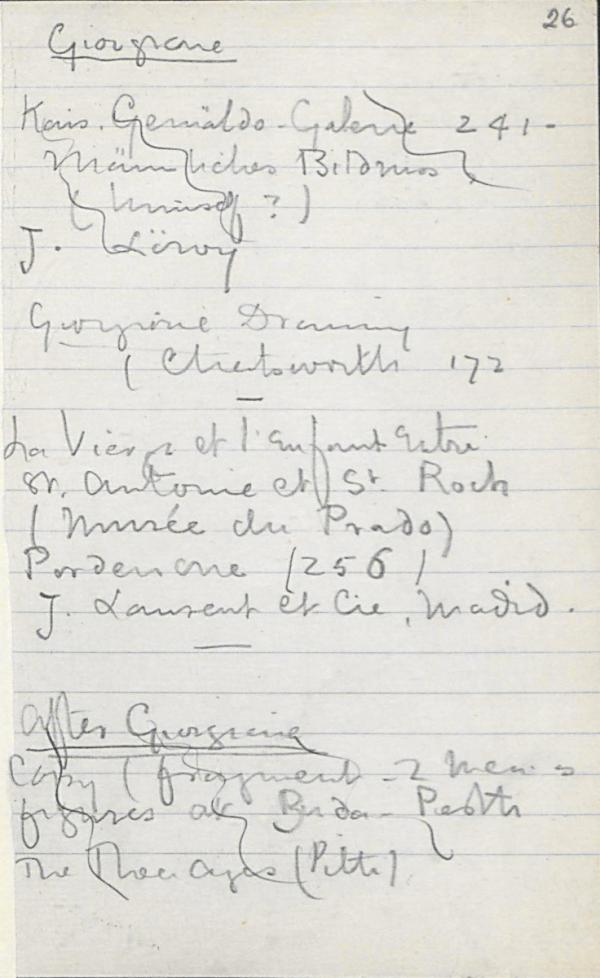 26
Giorgione
Kais. Gemäldo-Galerie 241-
Männliches Bildnis
( ?)
J. Löwy
Giorgione Drawing
( Chatsworth 172
La Vierge et l'Enfant Entre
St. Antoine et St. Roch
(Musée du Prado)
Pordenone (256)
J. Laurent et Cie, Madrid.
After Giorgione
Copy (fragment - 2 men's
figures at Buda-Pesth
The Three Ages (Pitti)